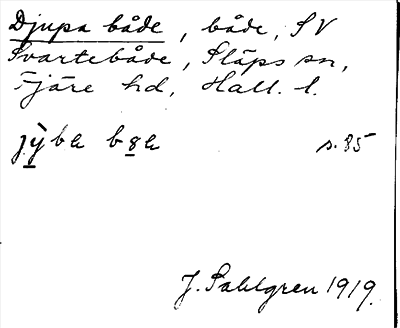 Djupa både, både, SV
Svartebåde, Släps sn,
Fjäre hd, Hall. l.
s. 85
J. Sahlgren 1919.